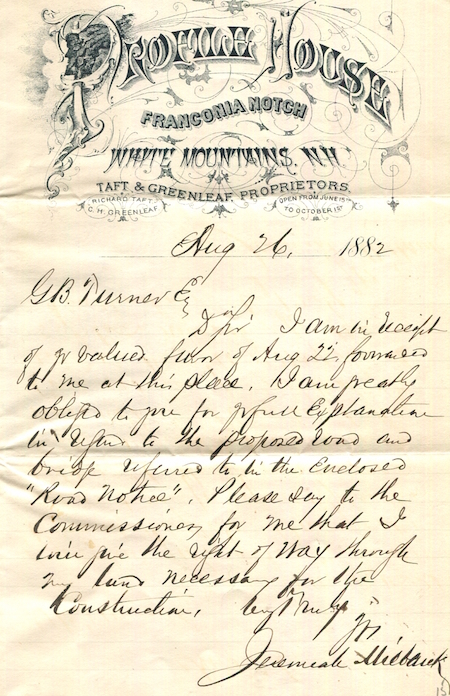 PROFILE HOUSE
FRANCONIA NOTCH
WHITE MOUNTAINS, N.H.
TAFT & GREENLEAF, PROPRIETORS.
RICHARD TAFT
C. H. GREENLEAF
OPEN FROM JUNE 15TH
TO OCTOBER 1ST
Aug 26, 1882
G B. Turner Esq
D Sir I am in receipt
of yr valued favor of Aug 22 forwarded
to me at this place. I am greatly
obliged to you for yr full Explanation
in regard to the proposed road and
bridge referred to in the Enclosed
"Road Notice". Please say to the
Commissioners for me that I
will give the right of Way through
my land necessary for the
Construction, Very Truly
Yrs
Jeremiah